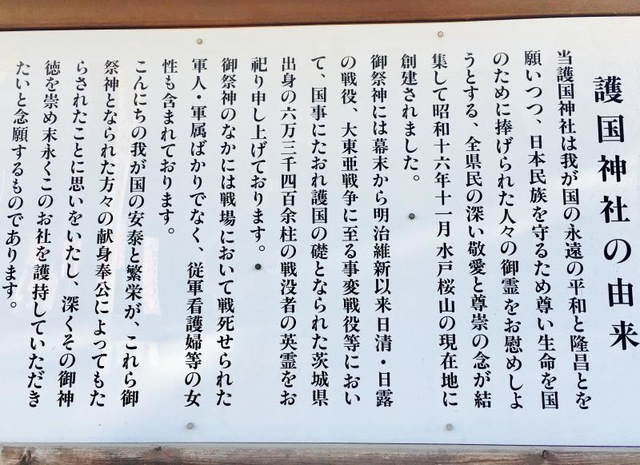 護国神社の由来
当護国神社は我が国の永遠の平和と隆昌とを
願いつつ、日本民族を守るため尊い生命を国
のために捧げられた人々の御霊をお慰めしよ
うとする、全県民の深い敬愛と尊崇の念が結
集して昭和十六年十一月水戸桜山の現在地に
創建されました。
御祭神には幕末から明治維新以来日清・日露
の戦役、大東亜戦争に至る事変戦役等におい
て、国事にたおれ護国の礎となられた茨城県
出身の六万三千四百余柱の戦没者の英霊をお
祀り申し上げております。
御祭神のなかには戦場において戦死せられた
軍人・軍属ばかりでなく、従軍看護婦等の女
性も含まれております。
こんにちの我が国の安泰と繁栄が、これら御
祭神となられた方々の献身奉公によってもた
らされたことに思いをいたし、深くその御神
徳を崇め末永くこのお社を護持していただき
たいと念願するものであります。